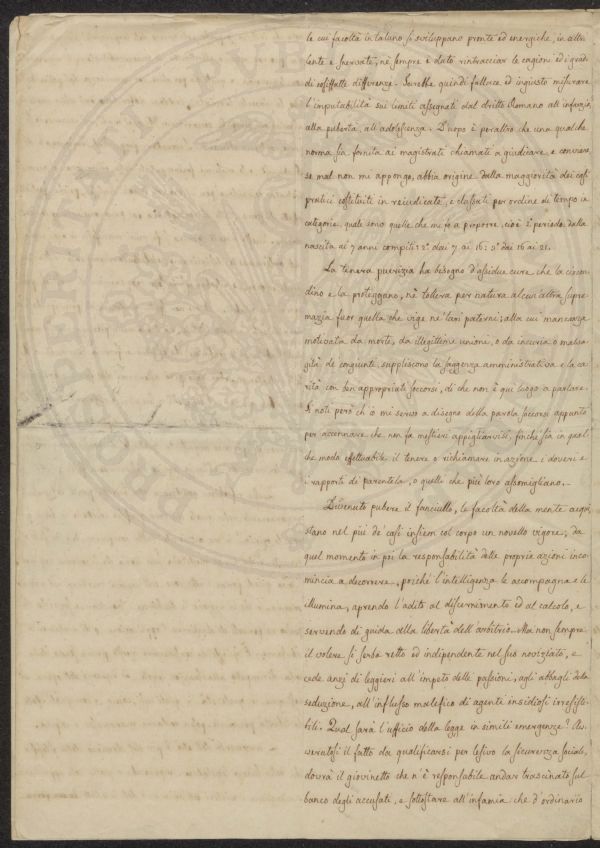 le cui facoltà in taluno si sviluppano pronte ed energiche, in altri
lente e snervate, nè sempre è dato rintracciar le cagioni ed i gradi
di cosiffatte differenze. Sarebbe quindi fallace ed ingiusto misurare
l'imputabilità sui limiti assegnati dal dritto Romano all'infanzia,
alla pubertà, all'adolescenza. D'uopo è peraltro che una qualche
norma sia fornita ai magistrati chiamati a giudicare, e conviene,
se mal non mi appongo, abbia origine dalla maggiorità dei casi
pratici costituiti in rejudicate, e classati per ordine di tempo in
categorie, quale sono quelle che mi fo a proporre, cioè 1° periodo dalla
nascita ai 7 anni compiti: 2° dai 7 ai 16: 3° dai 16 ai 21.
La tenera puerizia ha bisogno d'assidue cure che la circon-
dino e la proteggano, nè tollera per natura alcun'altra supre-
mazia fuor quella che vige ne' lari paterni; alla cui mancanza
motivata da morte, da illegittime unione, o da incuria o malva-
gità de' congiunti, suppliscono la saggezza amministrativa e la ca-
rità con ben appropriati soccorsi, di che non è qui luogo a parlare.
Si noti però ch'io mi servo a disegno della parola soccorsi appunto
per accennare che non fa mestieri appigliarvisi, finchè sia in qual-
che modo effettuabile il tenere o richiamare in azione i doveri e
i rapporti di parentela, o quelli che più loro assomigliano.
Divenuto pubere il fanciullo, le facoltà della mente acqui-
stano nel più de' casi insiem col corpo un novello vigore; da
quel momento in poi la responsabilità delle proprie azioni inco-
mincia a decorrere, poichè l'intelligenza le accompagna e le
illumina, aprendo l'adito al discernimento ed al calcolo, e
servendo di guida alla libertà dell'arbitrio. Ma non sempre
il volere si serba retto ed indipendente nel suo noviziato, e
cede anzi di leggieri all'impeto delle passioni, agli abbagli della
seduzione, all'influsso malefico di agenti insidiosi irresisti-
bili. Qual sarà l'ufficio della legge in simili emergenze? Av-
verutosi il fatto da qualificarsi per lesivo la sicurezza sociale,
dovrà il giovinetto che n'è responsabile andar trascinato sul
banco degli accusati, e sottostare all'infamia che d'ordinario
PROSPERITATI PUB